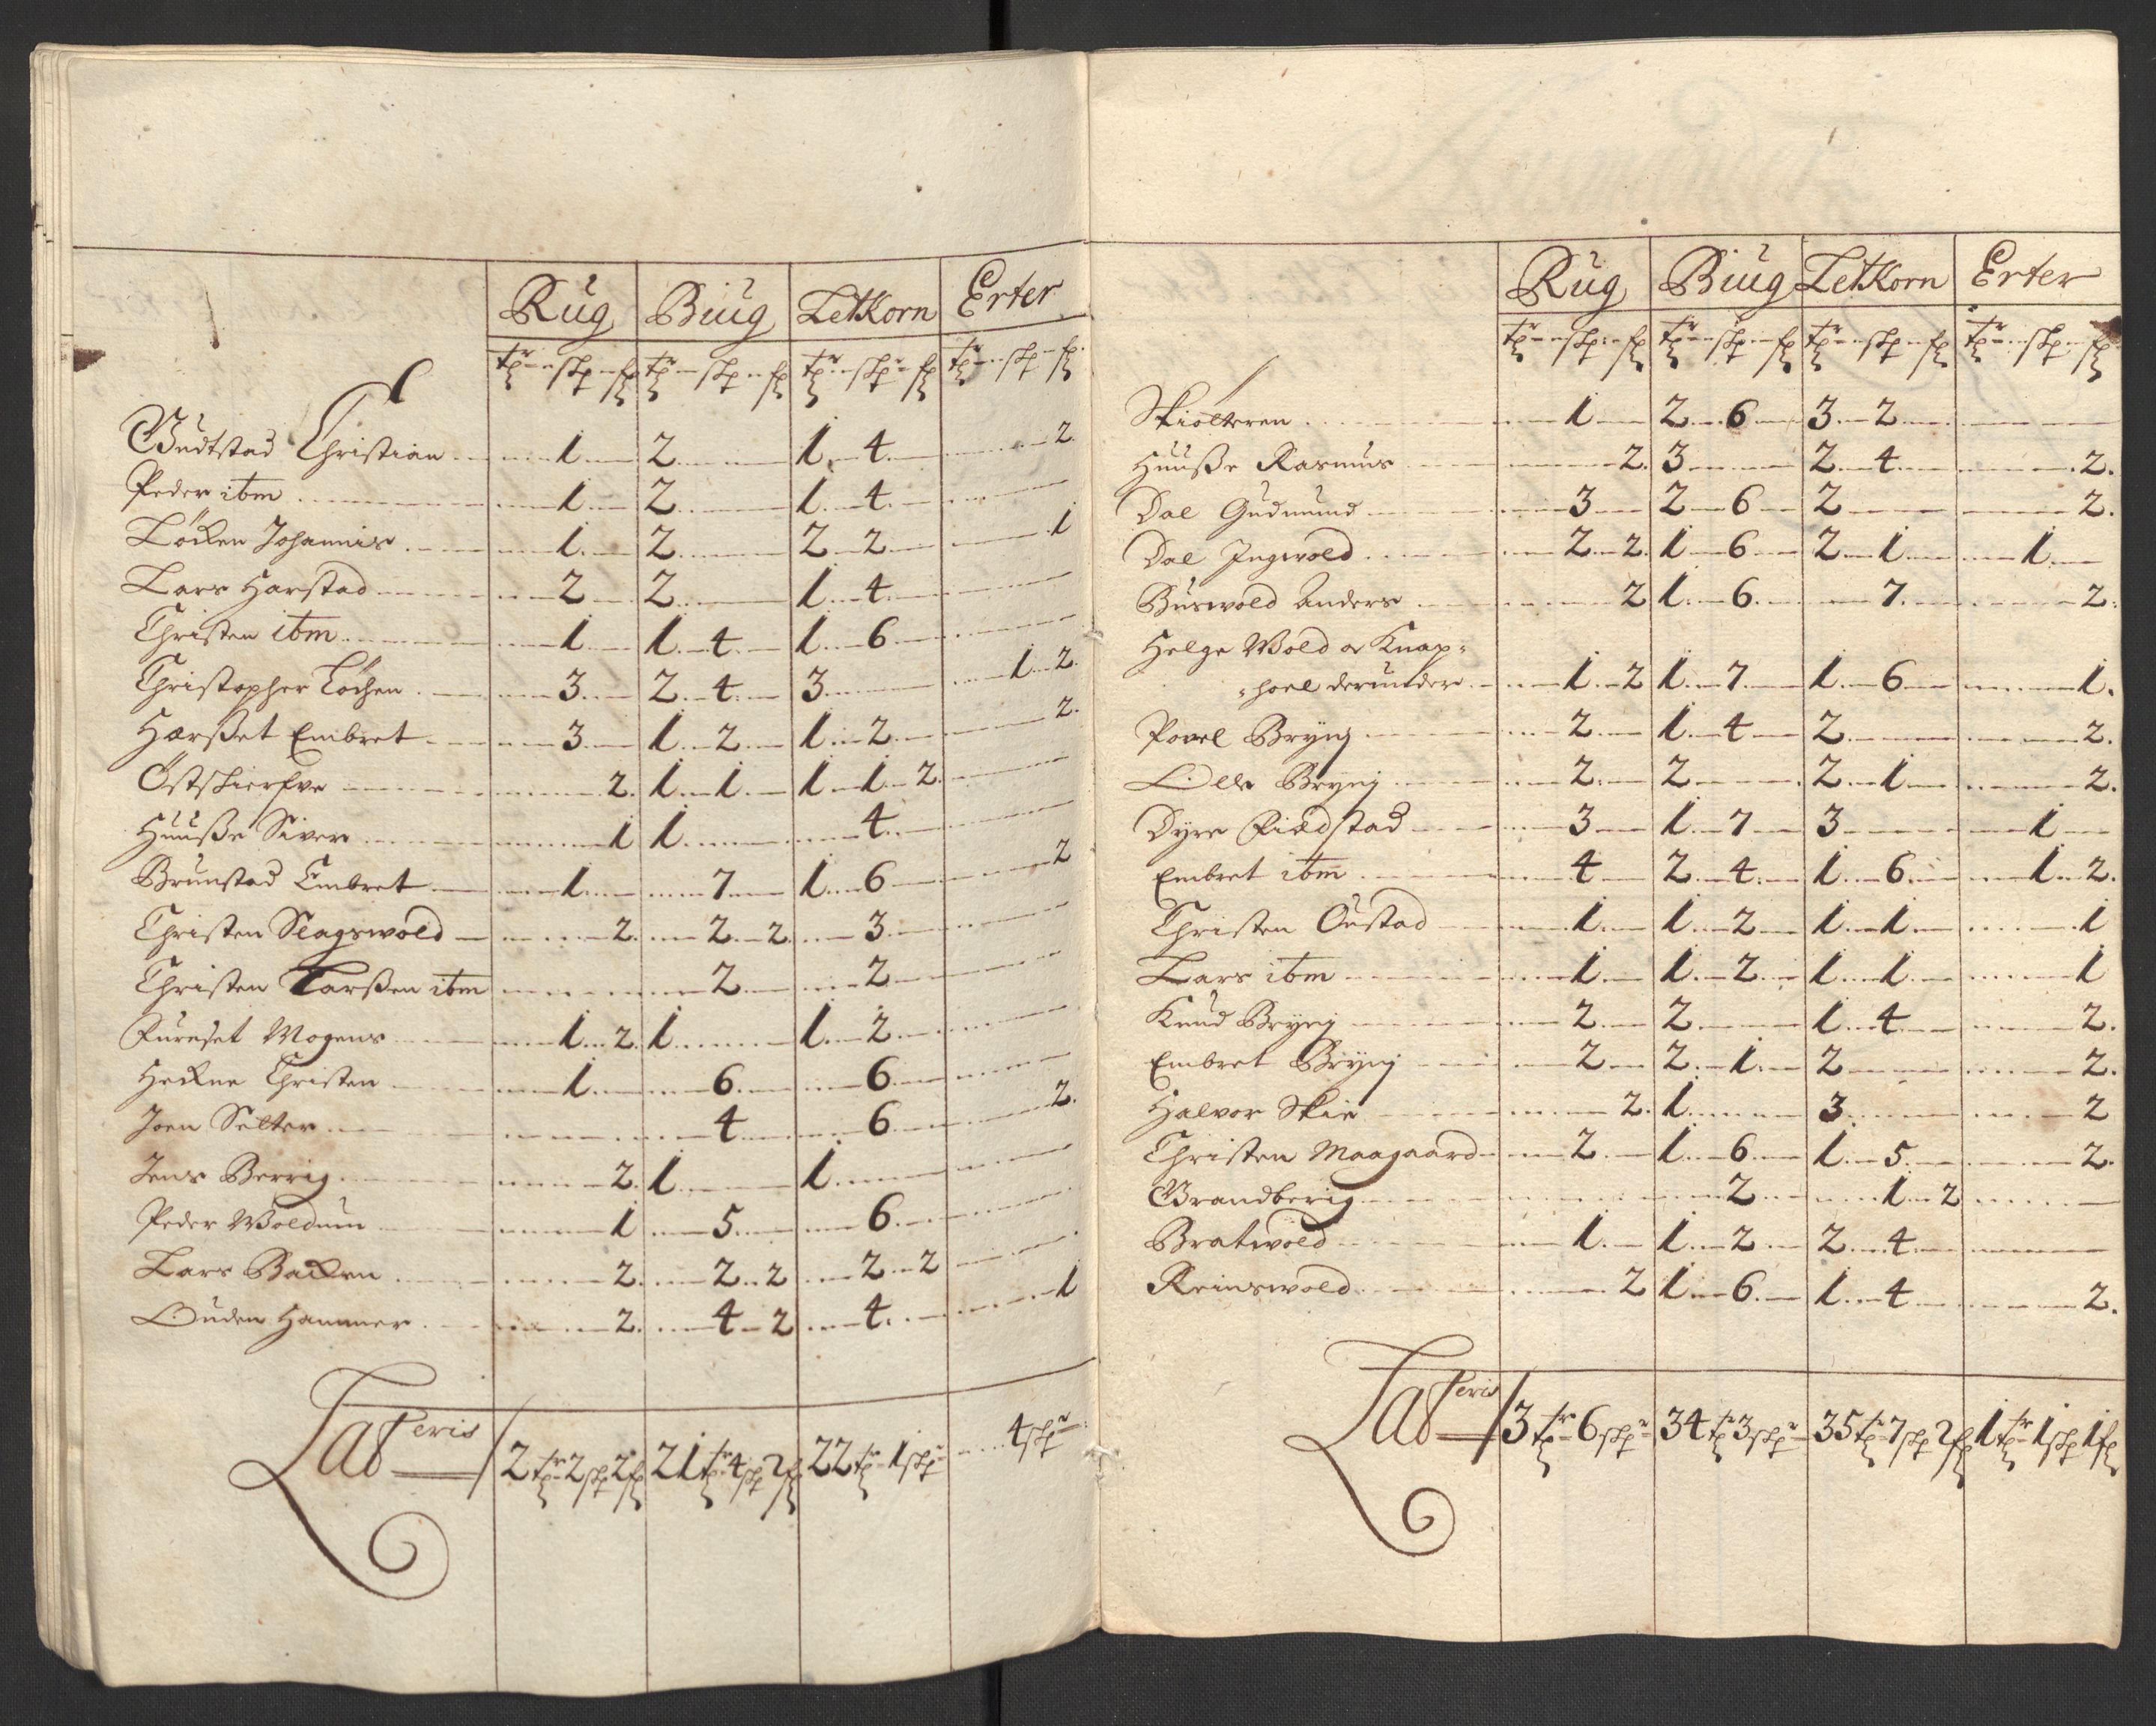 Rug Biug Letkorn Erter
tr skp fr tr skp fr tr skp fr tr skp fr
Gudtstad Christian 1 2 1 4 2
Peder itm 1 2 1 4
Löcken Johannis 1 2 2 2 1
Lars Harstad 2 2 1 4
Christen itm 1 1 4 1 6
Christopher Löchen 3 2 4 3 1 2
Harßet Embret 3 1 2 1 2 2
Östskierfve 2 1 1 1 1 2
Huuße Siver 1 1 4
Brunstad Embret 1 7 1 6 2
Christen Slagswold 2 2 2 3
Christen Larßen itm 2 2
Furuset Mogens 1 2 1 1 2
Heckne Christen 1 6 6
Joen Selter 4 6 2
Jens Berrig 2 1 1
Peder Woldum 1 5 6
Lars Backen 2 2 2 2 2
Ouden Hammer 2 4 2 4 1
Lateris 2 tr 2 skp 2 fr 21 tr 4 skp 2 fr 22 tr 1 skp 4 skp
Rug Biug Letkorn Erter
tr skp fr tr skp fr tr skp fr tr skp fr
Skiolteren 1 2 6 3 2
Huuße Rasmus 2 3 2 4 2
Dal Gudmund 3 2 6 2 2
Dal Ingwold 2 2 1 6 2 1 1
Buswold Anders 2 1 6 7 2
Helge Wold or Knap-
-hoel derunder 1 2 1 7 1 6 1
Povel Bryng 2 1 4 2 2
Olle Bryng 2 2 2 1 2
Dyre Fiædstad 3 1 7 3 1
Embret itm 4 2 4 1 6 1 2
Christen Oustad 1 1 2 1 1 1
Lars itm 1 1 2 1 1 1
Knud Bryng 2 2 1 4 2
Embret Bryng 2 2 1 2 2
Halvor Skie 2 1 3 2
Christen Maagaard 2 1 6 1 5 2
Brandberig 2 1 2
Bratwold 1 1 2 2 4
Reinswold 2 1 6 1 4 2
Lateris 3 tr 6 skp 34 tr 3 skp 35 tr 7 skp 2 fr 1 tr 1 skp 1 fr